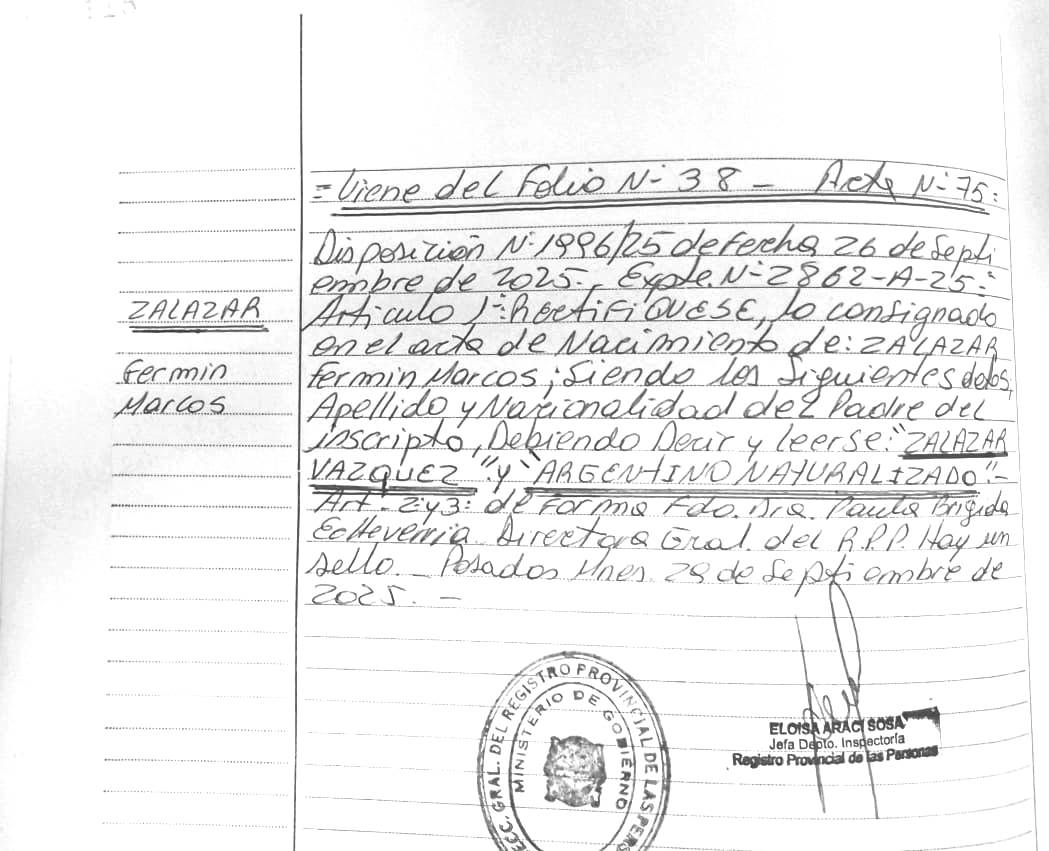 =Viene del Folio N- 38 - Acta N-75=
Disposición N: 1996/25 de fecha 26 de Septi
embre de 2025. Expte. N-2862-A-25=
ZALAZAR
Articulo 1-: RectiFiQUESE, lo consignado
en el acta de Nacimiento de: ZALAZAR
Fermin
Fermin Marcos; Siendo los Siguientes datos,
Marcos
Apellido y Nacionalidad del Padre del
inscripto, Debiendo Decir y leerse: "ZALAZAR
VAZQUEZ" y "ARGENTINO NATURALIZADO".-
Art. 2 y 3: de Forma Fdo. Dra. Paula Brigida
Echeverria Directora Gral. del R.P.P. Hay un
sello. - Posadas Mnes. 29 de Septiembre de
2025. -
ECC. GRAL. DEL REGISTRO PROVINCIAL DE LAS PERS
MINISTERIO DE GOBIERNO
ELOISA ARACI SOSA
Jefa Depto. Inspectoría
Registro Provincial de las Personas